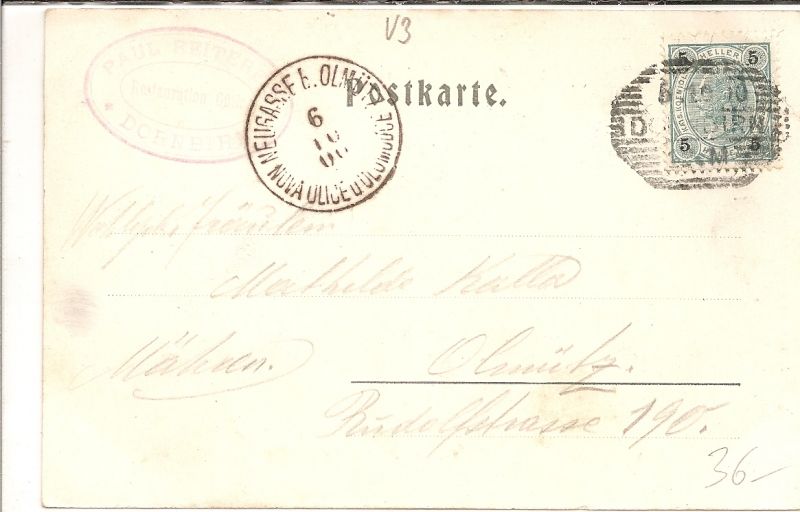 V3
PAUL REITER
Restauration
DORNBIRN
NEUGASSE b. OLMÜTZ
6
10
00
NOVÁ ULICE U OLOMOUCE
Postkarte.
5 HELLER 5
5 5
DORNBIRN
Fräulein
Mathilde Kalla
Mähren. Olmütz.
Rudolfstrasse 190.
36-